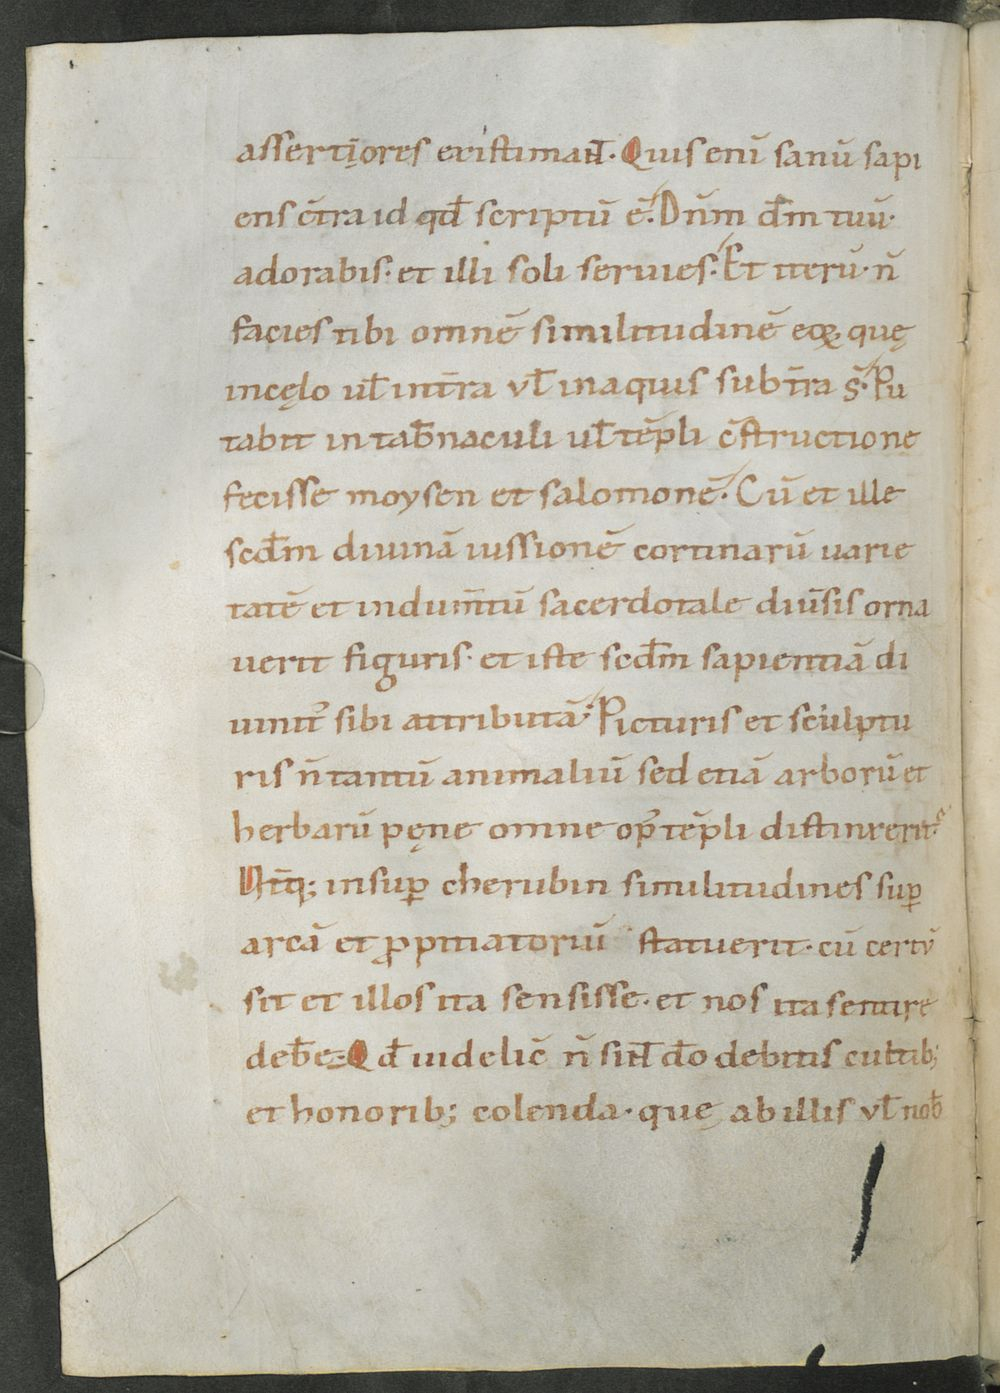 assertiores existimant. Quis eni̅ sanu̅ sapi
ens c̅tra id qd̅ scriptu̅ e̅. Dn̅m dm̅ tuu̅
adorabis. et illi soli seruies. Et iteru̅. n̅
facies tibi omne̅ similitudine̅ eoꝝ quę
incęlo ul̅ int̅ra vl̅ inaquis sub t̅ra s̅. Pu
tabit in tab̅naculi ul̅ te̅pli c̅structione
fecisse moysen et salomone̅. Cu̅ et ille
scd̅m diuina̅ iussione̅ cortinaru̅ uarie
tate̅ et indum̅tu̅ sacerdotale diu̅sis orna
uerit figuris. et iste scd̅m sapientia̅ di
uinit᷑ sibi attributa̅. Picturis et sculptu
ris n̅ tantu̅ animaliu̅ sed etia̅ arboru̅ et
herbaru̅ pęne omne op᷒ te̅pli distinxerit.
Ut̅q; insup̅ cherubin similitudines sup̅
arca̅ et ꝓpitiatoriu̅ statuerit. cu̅ certu̅
sit et illos ita sensisse. et nos ita sentire
deb̅e. Qd̅ uidelic̅ n̅ sint d̅o debitis cultib;
et honorib; colenda. quę ab illis vl̅ nob̅